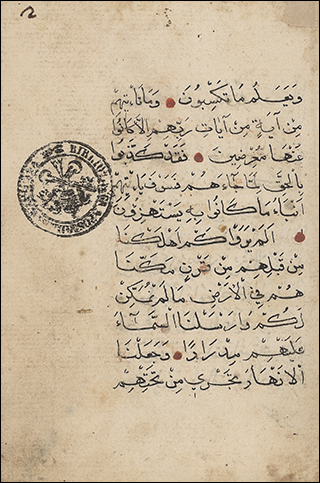 2
ويعلم ما تكسبون وما تأتيهم
من آية من آيات ربهم الا كانوا
عنها معرضين فقد كذبوا
بالحق لما جاءهم فسوف يأتيهم
انباء ما كانوا به يستهزؤن
الم يروا كم اهلكنا
من قبلهم من قرن مكنا
هم في الارض ما لم نمكن
لكم وارسلنا السماء
عليهم مدرارا وجعلنا
الانهار تجري من تحتهم